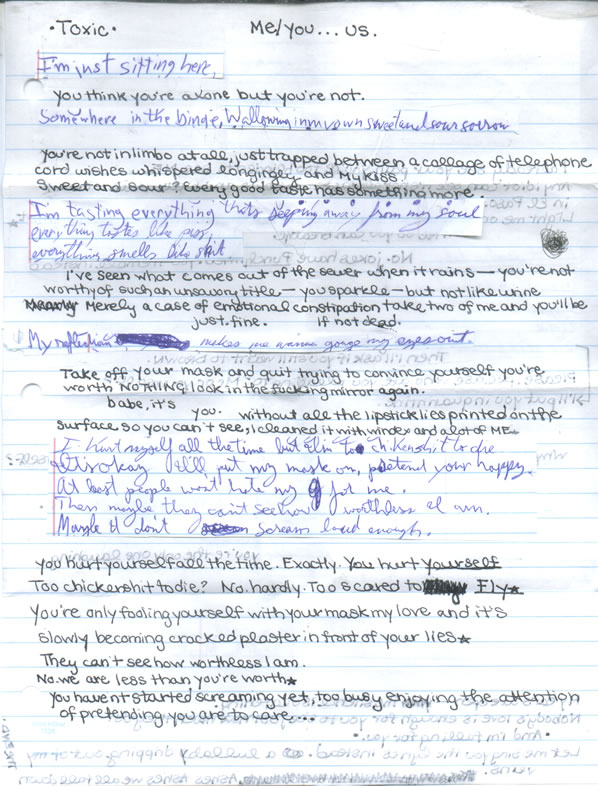 •Toxic• Me/you... us.
I'm just sitting here,
you think you're alone but you're not.
Somewhere in the binge, Wallowing in my own sweet and sour sorrow
you're not in limbo at all, just trapped between a callage of telephone
cord wishes whispered longingley and My kiss.
Sweet and sour? Every good taste has something more.
I'm tasting everything thats seeping away from my soul
everything tastes like piss,
everything smells like shit
I've seen what comes out of the sewer when it rains — you're not
worthy of such an unsavory title — you sparkle — but not like urine
Merely a case of emotional constipation take two of me and you'll be
just. fine. if not dead.
My reflection makes me wanna gouge my eyes out.
Take off your mask and quit trying to convince yourself you're
worth NOTHING look in the fucking mirror again.
babe, it's you. without all the lipstick lies printed on the
surface so you can't see, I cleaned it with windex and a lot of ME.
I hurt myself all the time but I'm to chikenshit to die
Its okay I'll put my mask on, pretend your happy.
At best people won't hate my for me.
Then maybe they can't see how worthless I am.
Maybe I don't scream loud enough.
you hurt yourself all the time. Exactly. You hurt yourself
Too chickershit to die? No. hardly. Too scared to Fly★
You're only fooling yourself with your mask my love and it's
slowly becoming cracked plaster in front of your lies★
They can't see how worthless I am.
No. we are less than you're worth★
You havent started screaming yet, too busy enjoying the attention
of pretending you are to care...